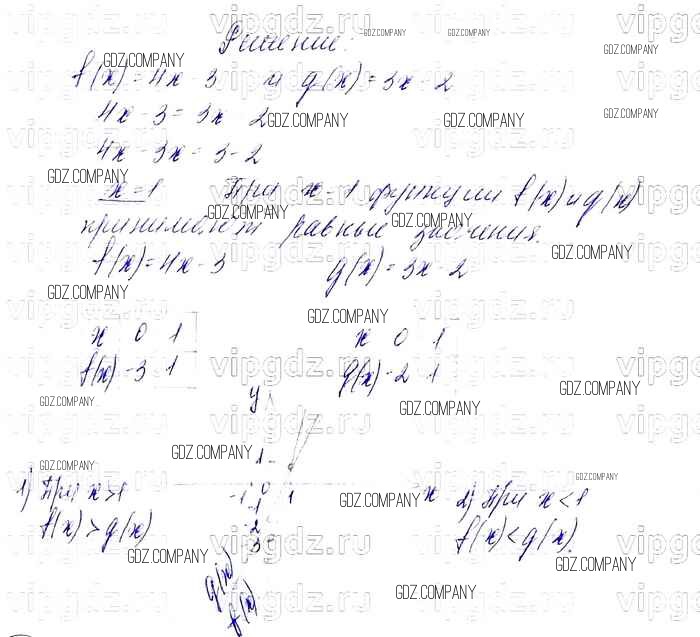 Решение:
f(x) = 4x - 3 и g(x) = 3x - 2
4x - 3 = 3x - 2
4x - 3x = 3 - 2
x = 1 При x = 1 функции f(x) и g(x)
принимают равные значения.
f(x) = 4x - 3 g(x) = 3x - 2
x 0 1 x 0 1
f(x) -3 1 g(x) -2 1
y
1
-1 0 1 x
-1
-2
-3
g(x)
f(x)
1) При x > 1
f(x) > g(x)
2) При x < 1
f(x) < g(x).
GDZ.COMPANY
vipgdz.ru